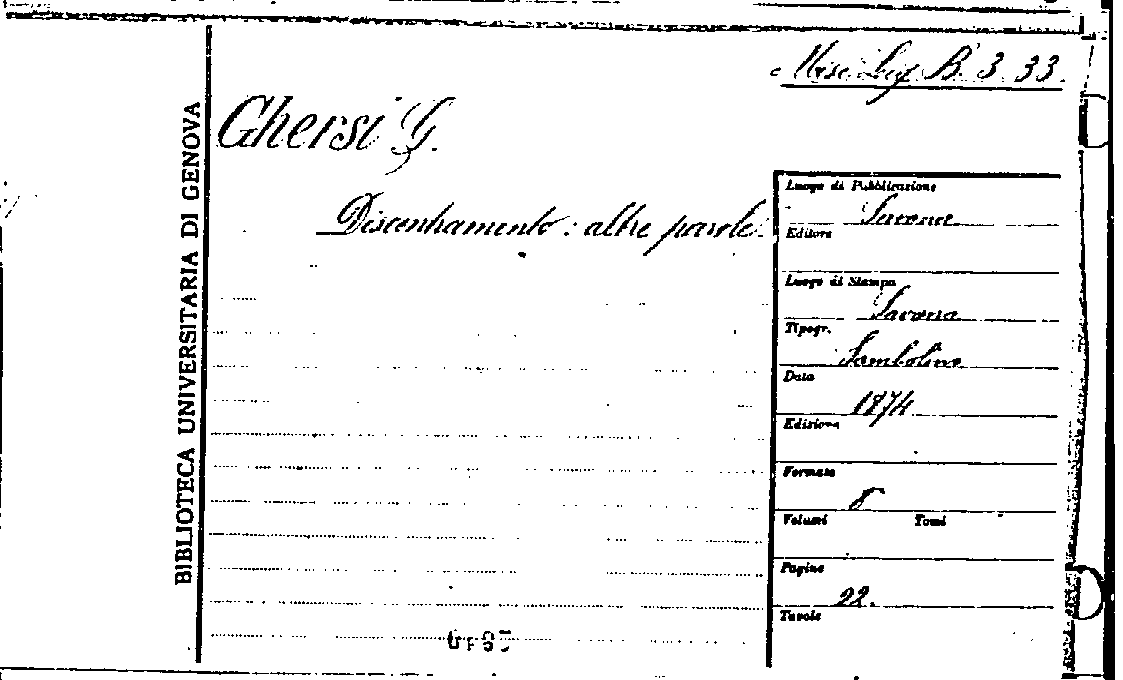 Misc. Lig. B. 3. 33.
BIBLIOTECA UNIVERSITARIA DI GENOVA
Ghersi G.
Discentramento: altre parole.
Luogo di Pubblicazione
Savona
Editore
Luogo di Stampa
Savona
Tipogr.
Sambolino
Data
1874
Edizione
Formato
8
Volumi Tomi
Pagine
22.
Tavole